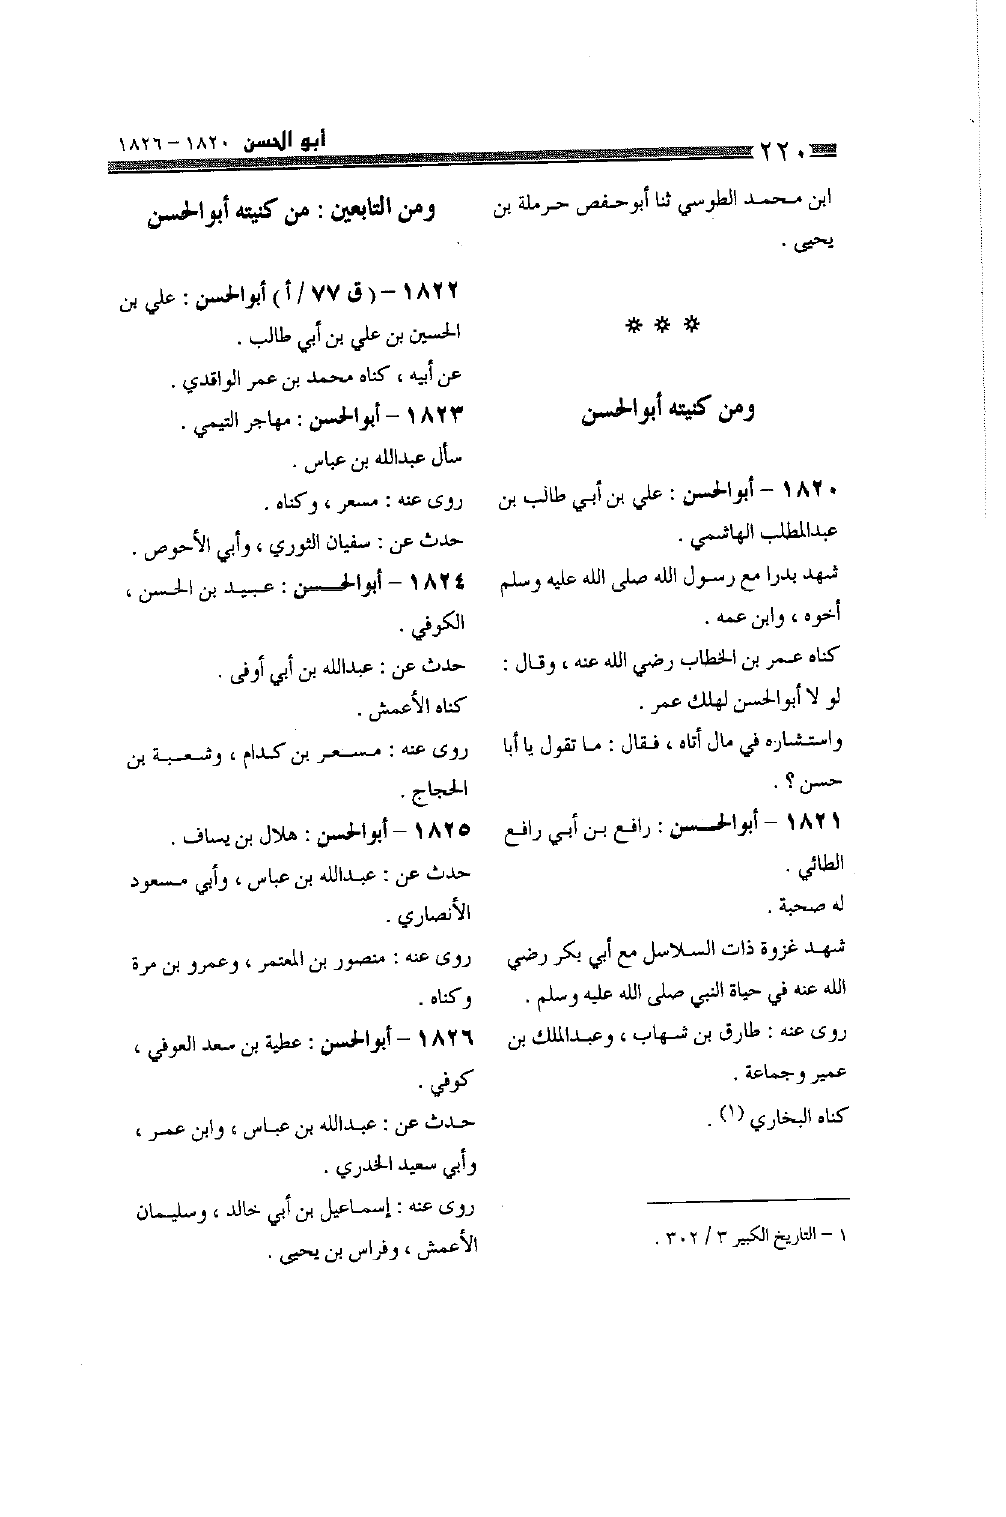 ٢٢٠
أبو الحسن ١٨٢٠ - ١٨٢٦
ابن محمد الطوسي ثنا أبوحفص حرملة بن
يحيى .
* * *
ومن كنيته أبوالحسن
١٨٢٠ - أبوالحسن : علي بن أبي طالب بن
عبدالمطلب الهاشمي .
شهد بدرا مع رسول الله صلى الله عليه وسلم
أخوه ، وابن عمه .
كناه عمر بن الخطاب رضي الله عنه ، وقال :
لو لا أبوالحسن لهلك عمر .
واستشاره في مال أتاه ، فقال : ما تقول يا أبا
حسن ؟ .
١٨٢١ - أبوالحسن : رافع بن أبي رافع
الطائي .
له صحبة .
شهد غزوة ذات السلاسل مع أبي بكر رضي
الله عنه في حياة النبي صلى الله عليه وسلم .
روى عنه : طارق بن شهاب ، وعبدالملك بن
عمير وجماعة .
كناه البخاري (١) .
١ - التاريخ الكبير ٣ / ٣٠٢ .
ومن التابعين : من كنيته أبوالحسن
١٨٢٢ - ( ق ٧٧ / أ ) أبوالحسن : علي بن
الحسين بن علي بن أبي طالب .
عن أبيه ، كناه محمد بن عمر الواقدي .
١٨٢٣ - أبوالحسن : مهاجر التيمي .
سأل عبدالله بن عباس .
روى عنه : مسعر ، وكناه .
حدث عن : سفيان الثوري ، وأبي الأحوص .
١٨٢٤ - أبوالحسن : عبيد بن الحسن ،
الكوفي .
حدث عن : عبدالله بن أبي أوفى .
كناه الأعمش .
روى عنه : مسعر بن كدام ، وشعبة بن
الحجاج .
١٨٢٥ - أبوالحسن : هلال بن يساف .
حدث عن : عبدالله بن عباس ، وأبي مسعود
الأنصاري .
روى عنه : منصور بن المعتمر ، وعمرو بن مرة
وكناه .
١٨٢٦ - أبوالحسن : عطية بن سعد العوفي ،
كوفي .
حدث عن : عبدالله بن عباس ، وابن عمر ،
وأبي سعيد الخدري .
روى عنه : إسماعيل بن أبي خالد ، وسليمان
الأعمش ، وفراس بن يحيى .